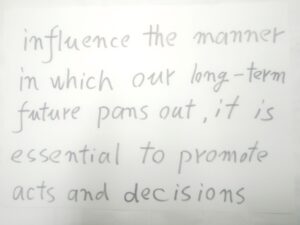 influence the manner
in which our long-term
future pans out, it is
essential to promote
acts and decisions